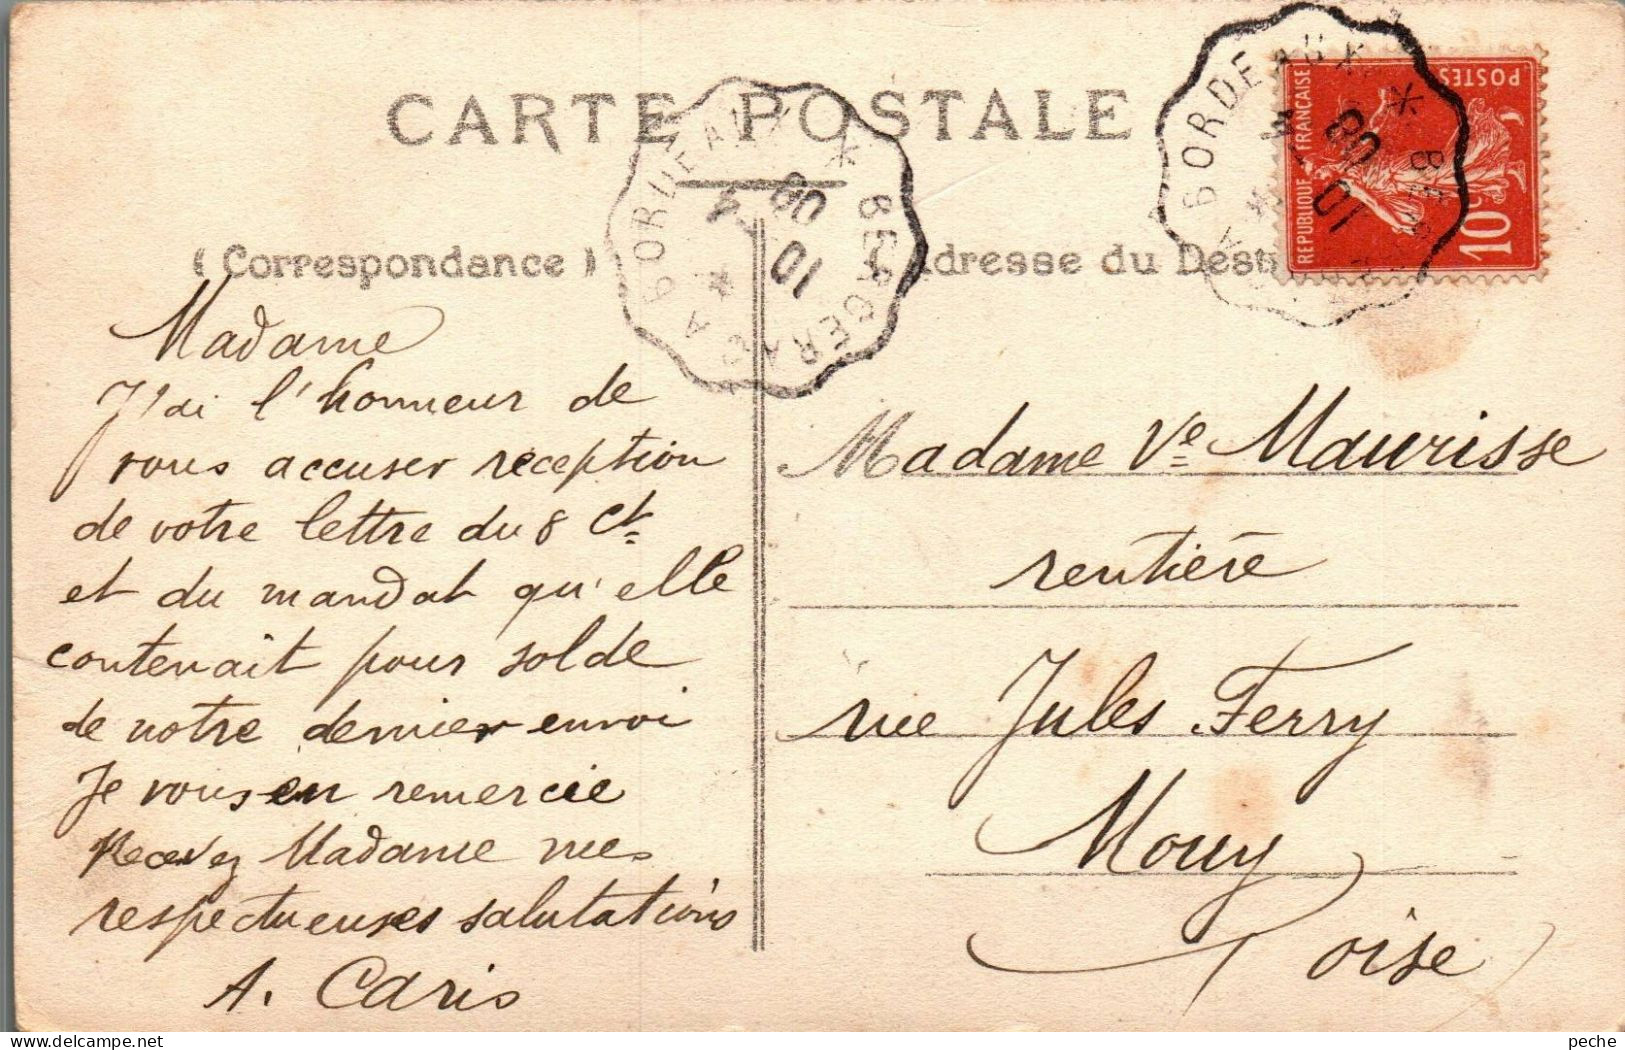 CARTE POSTALE
( Correspondance )
Adresse du Dest
BORDEAUX * BERGERAC A *
10
08
4
BORDEAUX *
10
08
4
REPUBLIQUE FRANCAISE
POSTES
10c
Madame
J'ai l'honneur de
vous accuser reception
de votre lettre du 8 Ct
et du mandat qu'elle
contenait pour solde
de notre dernier envoi
Je vous en remercie
Recevez Madame mes
respectueuses salutations
A. Caris
Madame Ve Maurisse
rentière
rue Jules Ferry
Mouy
Oise
peche